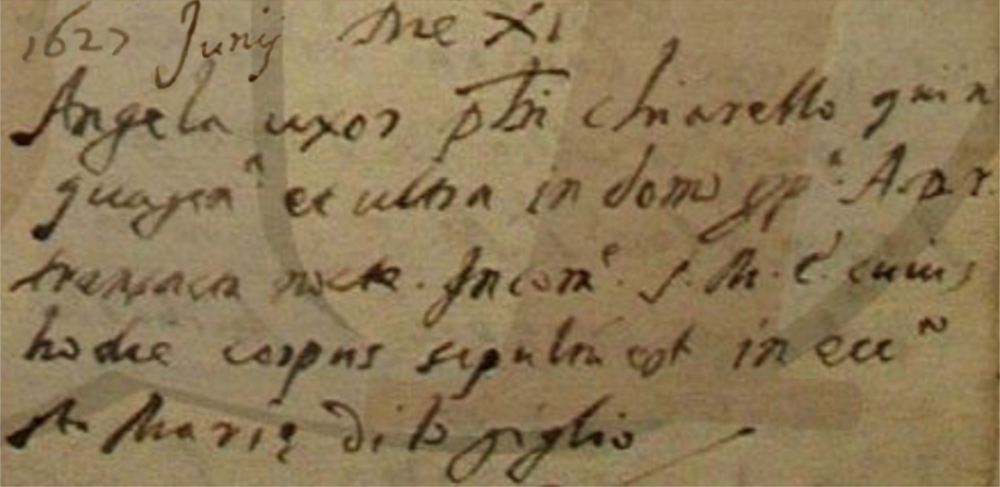 1627 Junij Die XI
Angela uxor pbri Chiarello quin
quagen.a et ultra in domo pp.a A.D.r.
transacta nocte. In com.e S. M. E. cuius
hodie corpus sepultu est in ecc.a
S.ta Marię di lo giglio